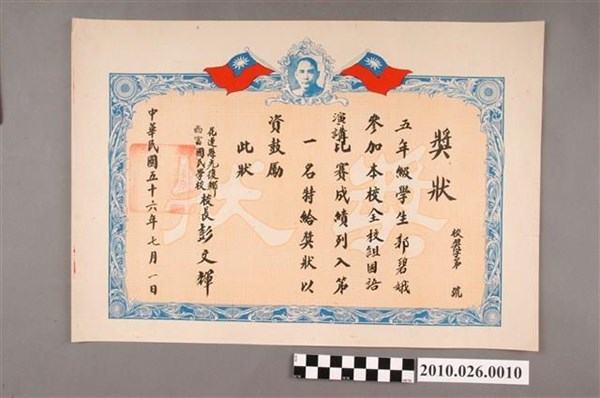 獎狀
校獎字第 號
五年級學生郭碧娥
參加本校全校組国語
演講比賽成績列入第
一名特給獎狀以
資鼓勵
此狀
花蓮縣光復鄉
西富國民學校校長彭文輝
中華民國五十六年七月一日
獎狀
2010.026.0010